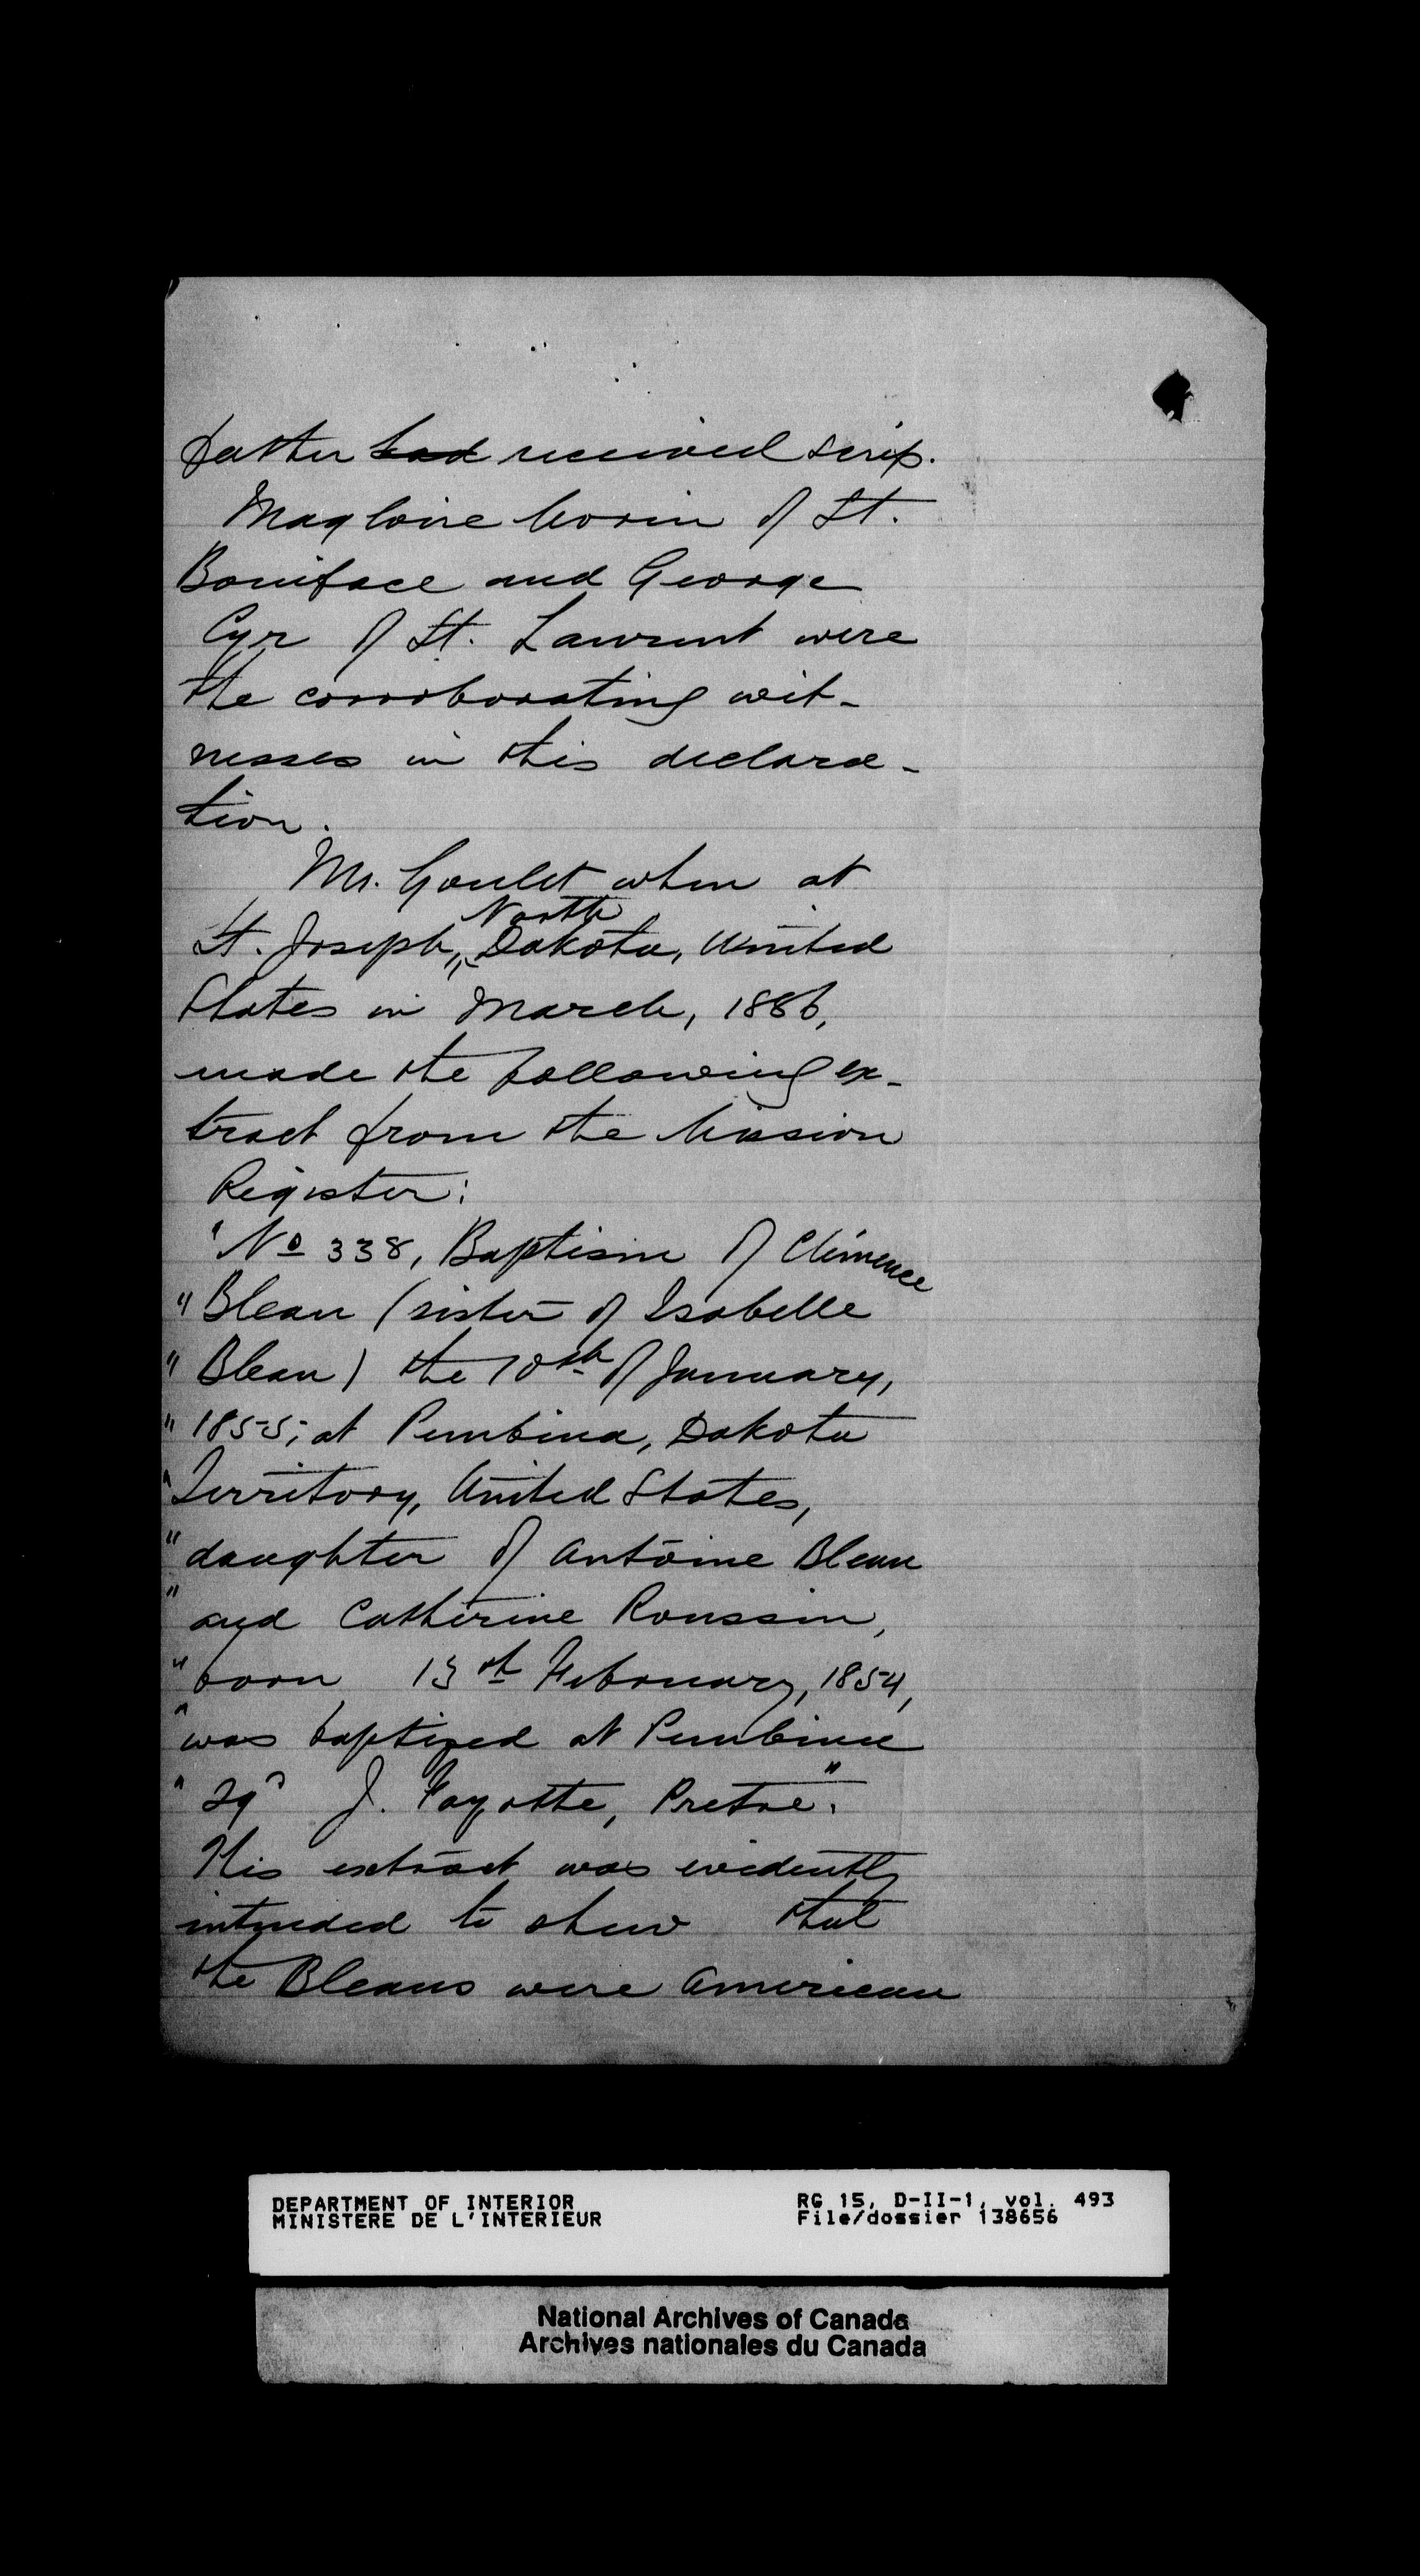 father had received scrip.
Magloire Morin of St.
Boniface and George
Cyr of St. Laurent were
the corroborating wit-
nesses in this declara-
tion.
Mr. Goulet when at
North
St. Joseph, Dakota, United
States in March, 1886,
made the following ex-
tract from the Mission
Register:
"No 338, Baptism of Clémence
" Bleau (sister of Isabelle
" Bleau) the 10th of January,
" 1855, at Pembina, Dakota
" Territory, United States,
" daughter of Antoine Bleau
" and Catherine Roussin,
" born 15th February, 1854,
" was baptized at Pembina
" Sgd J. Fayotte, Pretre".
This extract was evidently
intended to shew that
the Bleaus were American
DEPARTMENT OF INTERIOR
MINISTERE DE L'INTERIEUR
RG 15, D-II-1, vol. 493
File/dossier 138656
National Archives of Canada
Archives nationales du Canada